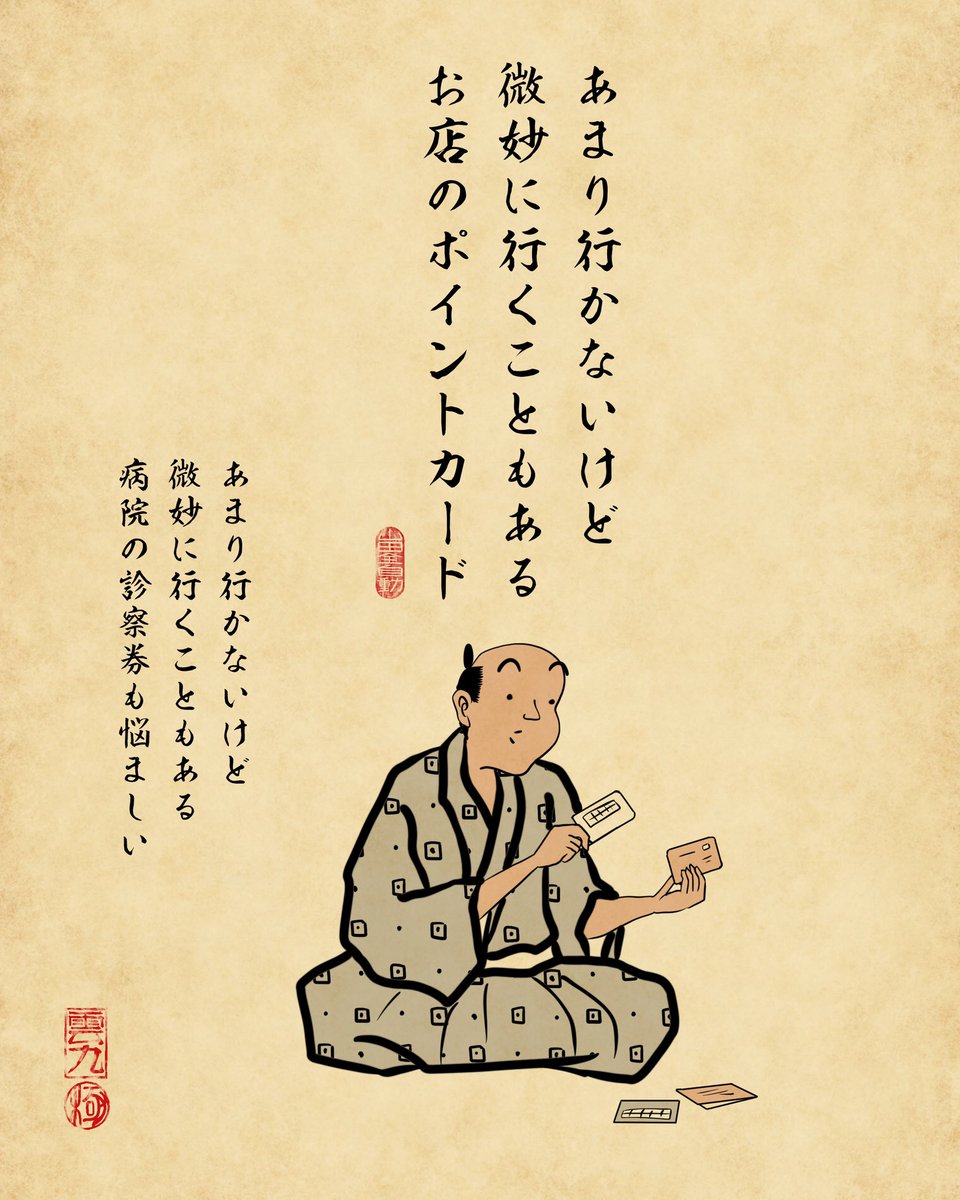 あまり行かないけど
微妙に行くこともある
お店のポイントカード
あまり行かないけど
微妙に行くこともある
病院の診察券も悩ましい